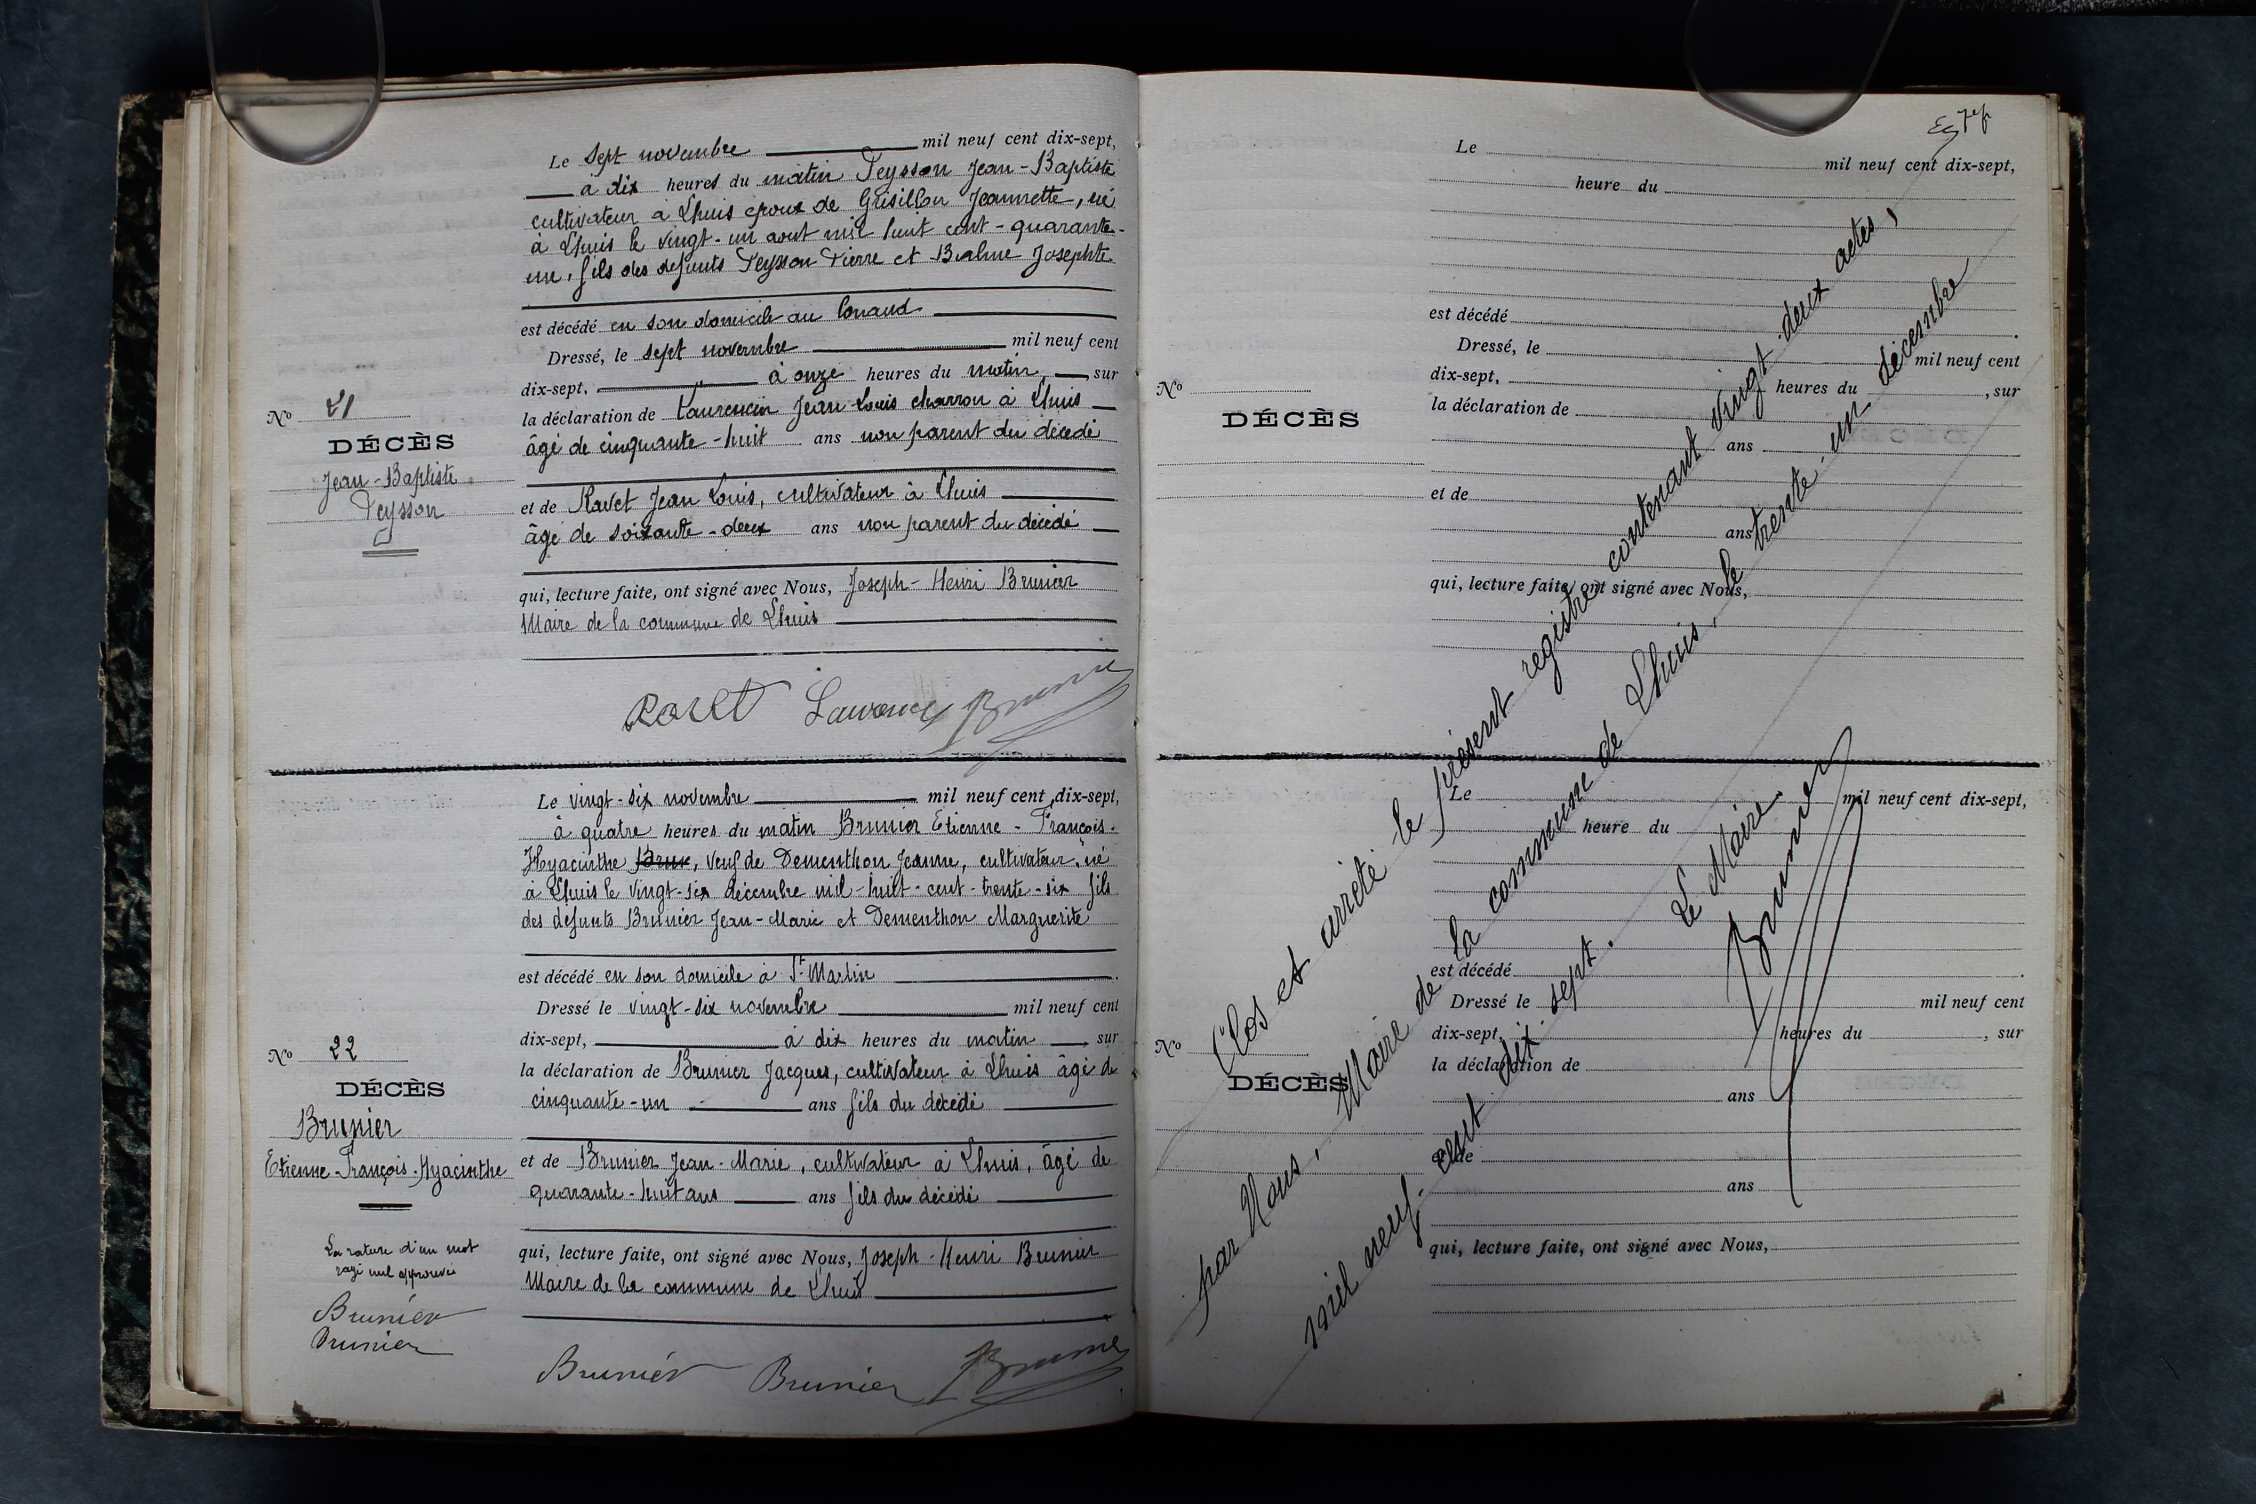 Le sept novembre mil neuf cent dix-sept,
à dix heures du matin Peysson Jean-Baptiste
cultivateur à Lhuis époux de Grisillon Jeannette, né
à Lhuis le vingt-un aout mil huit cent-quarante-
un, fils des defunts Peysson Pierre et Balme Josephte
est décédé en son domicile au
Dressé, le sept novembre mil neuf cent
dix-sept, à onze heures du matin, sur
la déclaration de Laurencin Jean Louis charron à Lhuis
âgé de cinquante-huit ans non parent du décédé
et de Ravet Jean Louis, cultivateur à Lhuis
âgé de soixante-deux ans non parent du décédé
qui, lecture faite, ont signé avec Nous, Joseph-Henri Brunier
Maire de la commune de Lhuis
No 21
DÉCÈS
Jean-Baptiste
Peysson
Ravet Laurencin Brunier
Le vingt-six novembre mil neuf cent dix-sept,
à quatre heures du matin Brunier Etienne-François-
Hyacinthe Brun, veuf de Dementhon Jeanne, cultivateur, né
à Lhuis le vingt-six décembre mil-huit-cent-trente-six fils
des défunts Brunier Jean-Marie et Dementhon Marguerite
est décédé en son domicile à St Martin
Dressé le vingt-six novembre mil neuf cent
dix-sept, à dix heures du matin, sur
la déclaration de Brunier Jacques, cultivateur à Lhuis âgé de
cinquante-un ans fils du décédé
et de Brunier Jean-Marie, cultivateur à Lhuis, âgé de
quarante-huit ans ans fils du décédé
qui, lecture faite, ont signé avec Nous, Joseph-Henri Brunier
Maire de la commune de Lhuis
No 22
DÉCÈS
Brunier
Etienne-François-Hyacinthe
La rature d'un mot
rayé nul approuvée
Brunier
Brunier
Brunier Brunier Brunier
Le mil neuf cent dix-sept,
heure du
est décédé
Dressé, le mil neuf cent
dix-sept, heures du , sur
la déclaration de
ans
et de
ans
qui, lecture faite, ont signé avec Nous,
No
DÉCÈS
Clos et arrêté le présent registre contenant vingt-deux actes,
par Nous, Maire de la commune de Lhuis, le trente-un décembre
mil neuf-cent dix-sept.
Le Maire.
Brunier
Le mil neuf cent dix-sept,
heure du
est décédé
Dressé le mil neuf cent
dix-sept, heures du , sur
la déclaration de
ans
et de
ans
qui, lecture faite, ont signé avec Nous,
No
DÉCÈS